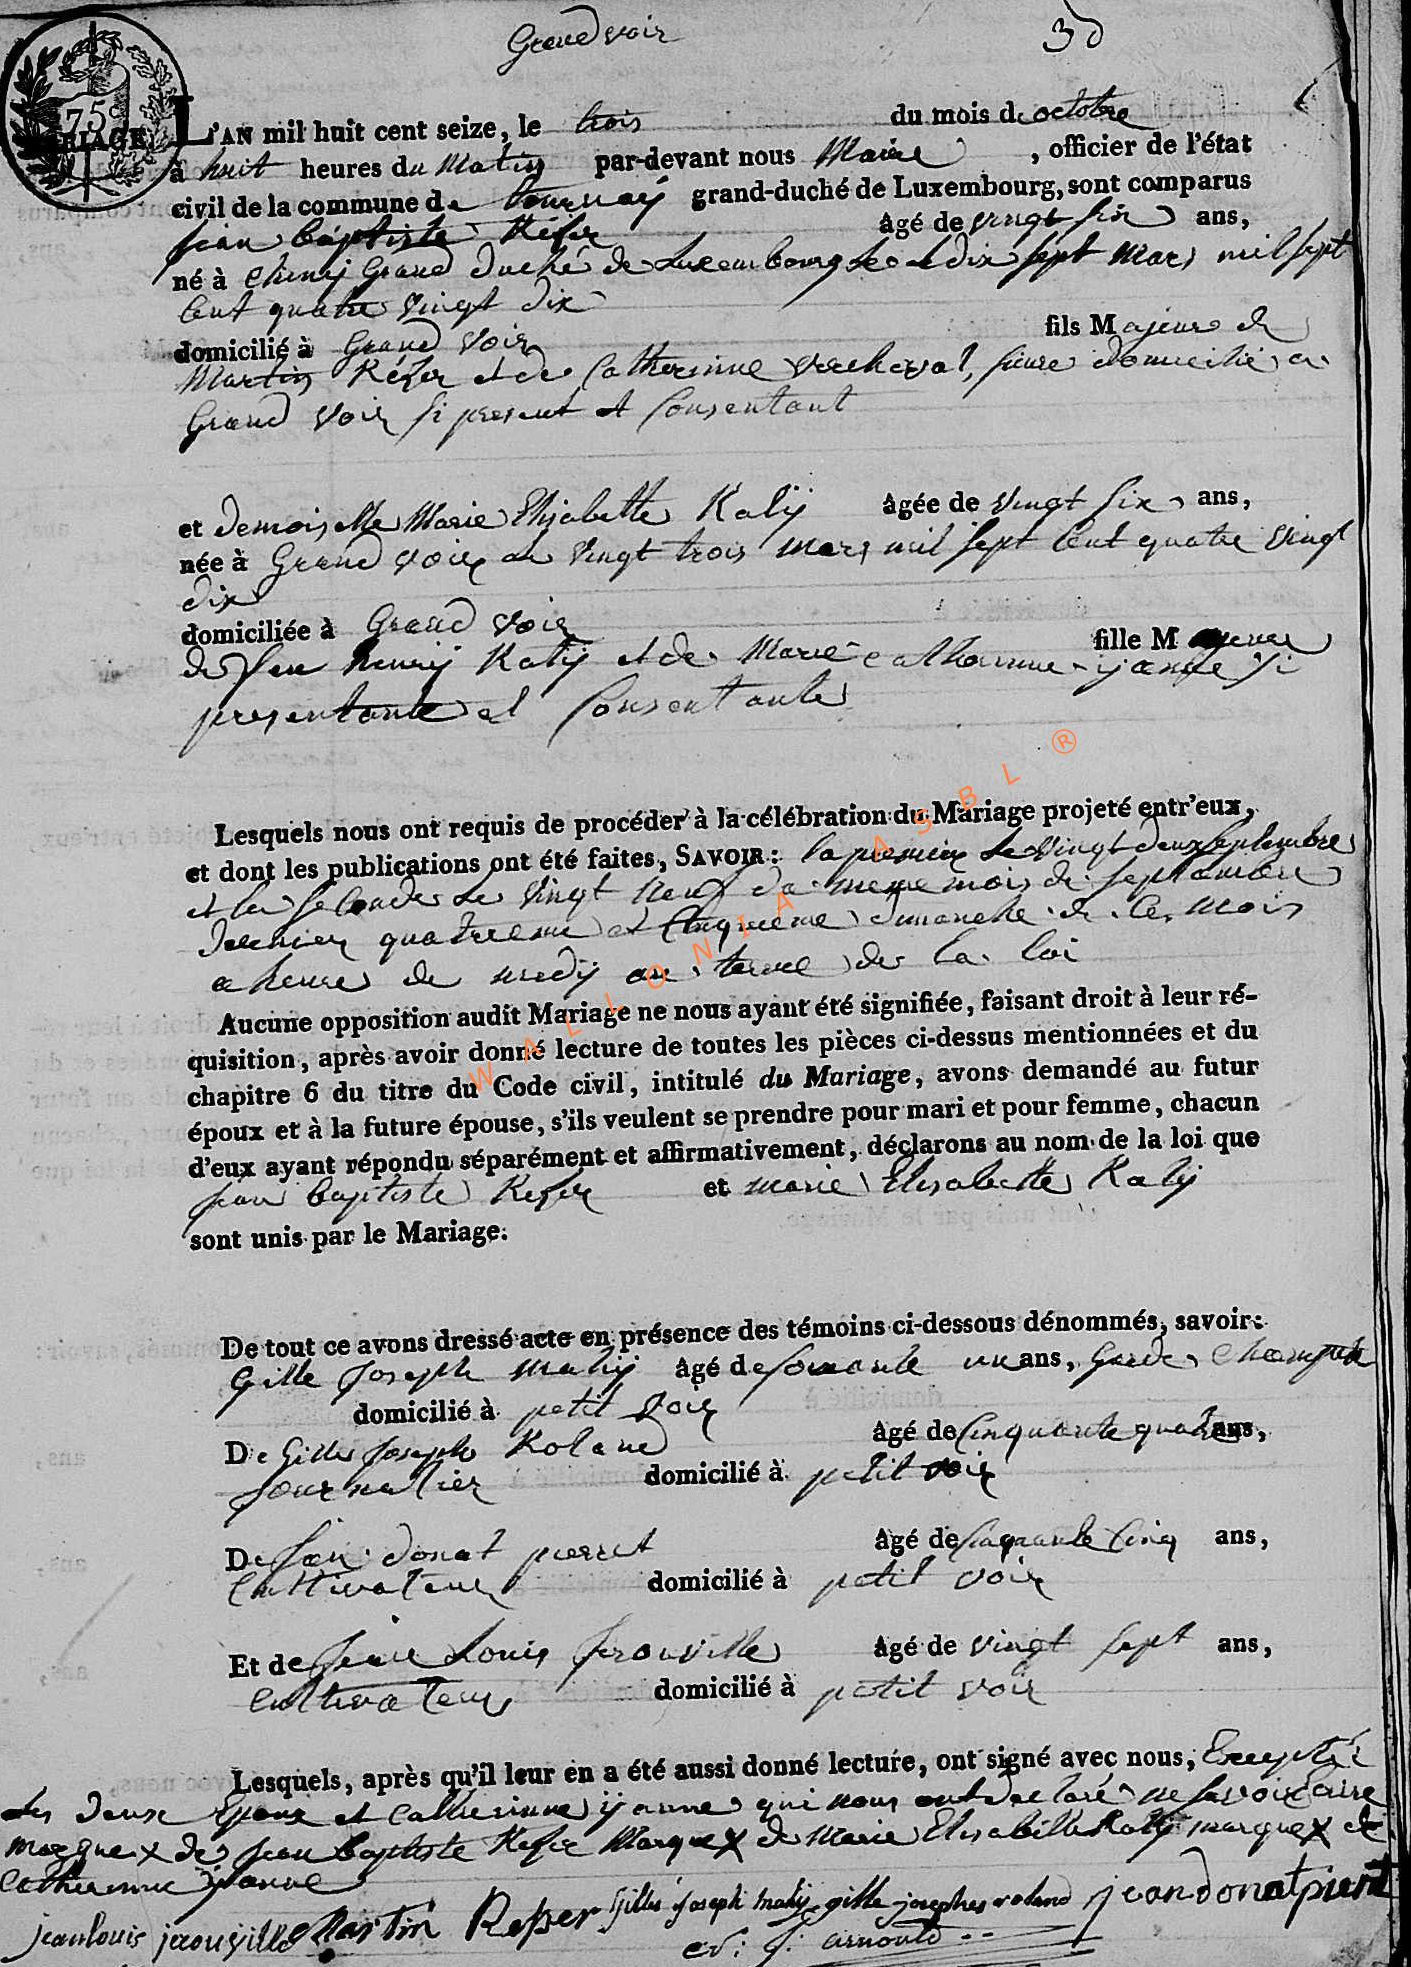 Grand voir
30
75
MARIAGE. L'AN mil huit cent seize, le trois du mois de octobre
à huit heures du Matin par-devant nous Maire , officier de l'état
civil de la commune de tournay grand-duché de Luxembourg, sont comparus
jean baptiste Kefer âgé de vingt six ans,
né à cheny Grand duché de Luxembourg le dix sept Mars mil sept
Cent quatre vingt dix
domicilié à Grand Voir fils Majeur de
Martin Kefer et de Catherinne domicilié a
Grand Voir si present et Consentant
et demoiselle Marie Elisabette Katy âgée de vingt six ans,
née à Grand voir le vingt trois mars mil sept Cent quatre vingt
dix
domiciliée à Grand Voir fille Majeure
de feu henrij Katij et de Marie catherinne ijanne si
presentante et Consentante
Lesquels nous ont requis de procéder à la célébration du Mariage projeté entr'eux,
et dont les publications ont été faites, SAVOIR : la premier Le vingt deux septembre
et la seconde Le Vingt neuf du meme mois de septembre
dernier quatrieme et Cinquieme dimanche de Ce mois
a heure de midij au terme de la loi
Aucune opposition audit Mariage ne nous ayant été signifiée, faisant droit à leur ré-
quisition, après avoir donné lecture de toutes les pièces ci-dessus mentionnées et du
chapitre 6 du titre du Code civil, intitulé du Mariage, avons demandé au futur
époux et à la future épouse, s'ils veulent se prendre pour mari et pour femme, chacun
d'eux ayant répondu séparément et affirmativement, déclarons au nom de la loi que
jean baptiste Kefer et marie Elisabette Katij
sont unis par le Mariage:
De tout ce avons dressé acte en présence des témoins ci-dessous dénommés, savoir:
Gille Joseph mahij âgé de soixante un ans, Garde Champetre
domicilié à petit Voir
De Gille Joseph Roland âgé de Cinquante quatre ans,
journalier domicilié à petit voir
De jean donat pierret âgé de Cinquante Cinq ans,
Cultivateur domicilié à petit voir
Et de jean Louis jerouville âgé de vingt sept ans,
Cultivateur domicilié à petit voir
Lesquels, après qu'il leur en a été aussi donné lecture, ont signé avec nous, Excepté
Les deux Epoux et catherinne ijanne qui nous ont declaré ne savoir Ecrire
marque x de jean baptiste Kefer Marque X de Marie Elisabette Katij marque x de
catherinne ijanne
jean louis jerouville Martin Kefser gilles joseph mahij gille josephes roland jean donat pierret
J: arnould
WALLONIA ASBL ®